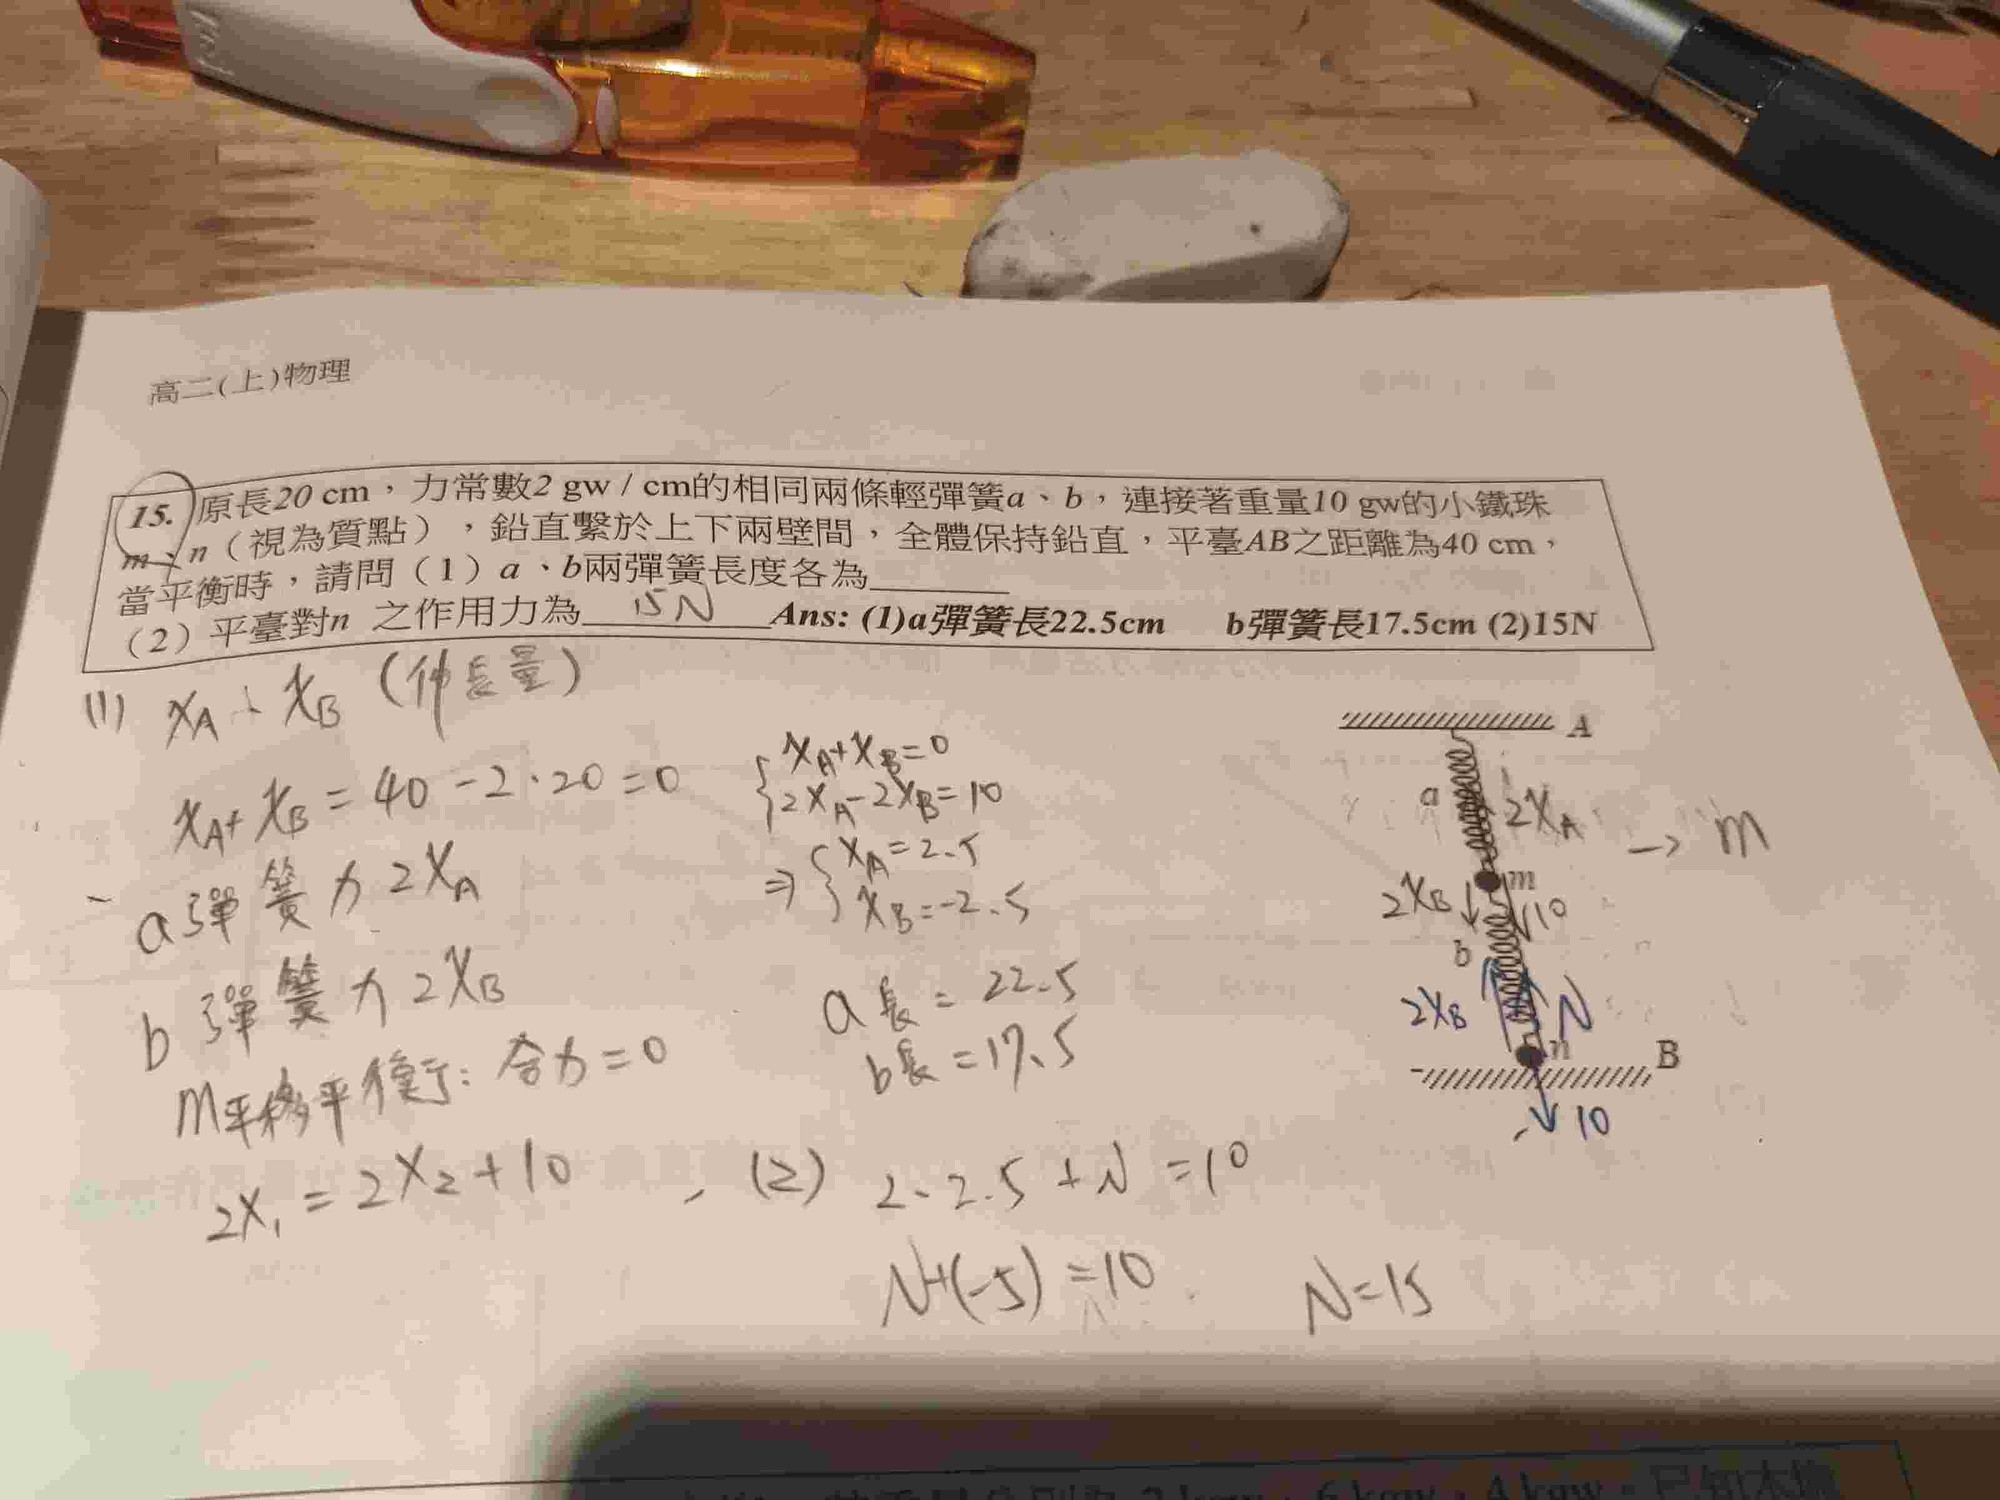 高二(上)物理
15. 原長20 cm，力常數2 gw / cm的相同兩條輕彈簧a、b，連接著重量10 gw的小鐵珠
m、n（視為質點），鉛直繫於上下兩壁間，全體保持鉛直，平臺AB之距離為40 cm，
當平衡時，請問（1）a、b兩彈簧長度各為
（2）平臺對n 之作用力為 15N Ans: (1)a彈簧長22.5cm b彈簧長17.5cm (2)15N
(1) xA、xB (伸長量)
xA+xB=40-2·20=0
a彈簧力2xA
b彈簧力2xB
m平移平衡:合力=0
2x1=2x2+10
xA+xB=0
2xA-2xB=10
⇒ xA=2.5
xB=-2.5
a長=22.5
b長=17.5
(2) 2·2.5+N=10
N+(-5)=10 N=15
A
a 2xA → m
m
2xB 10
b
2xB N
n B
10